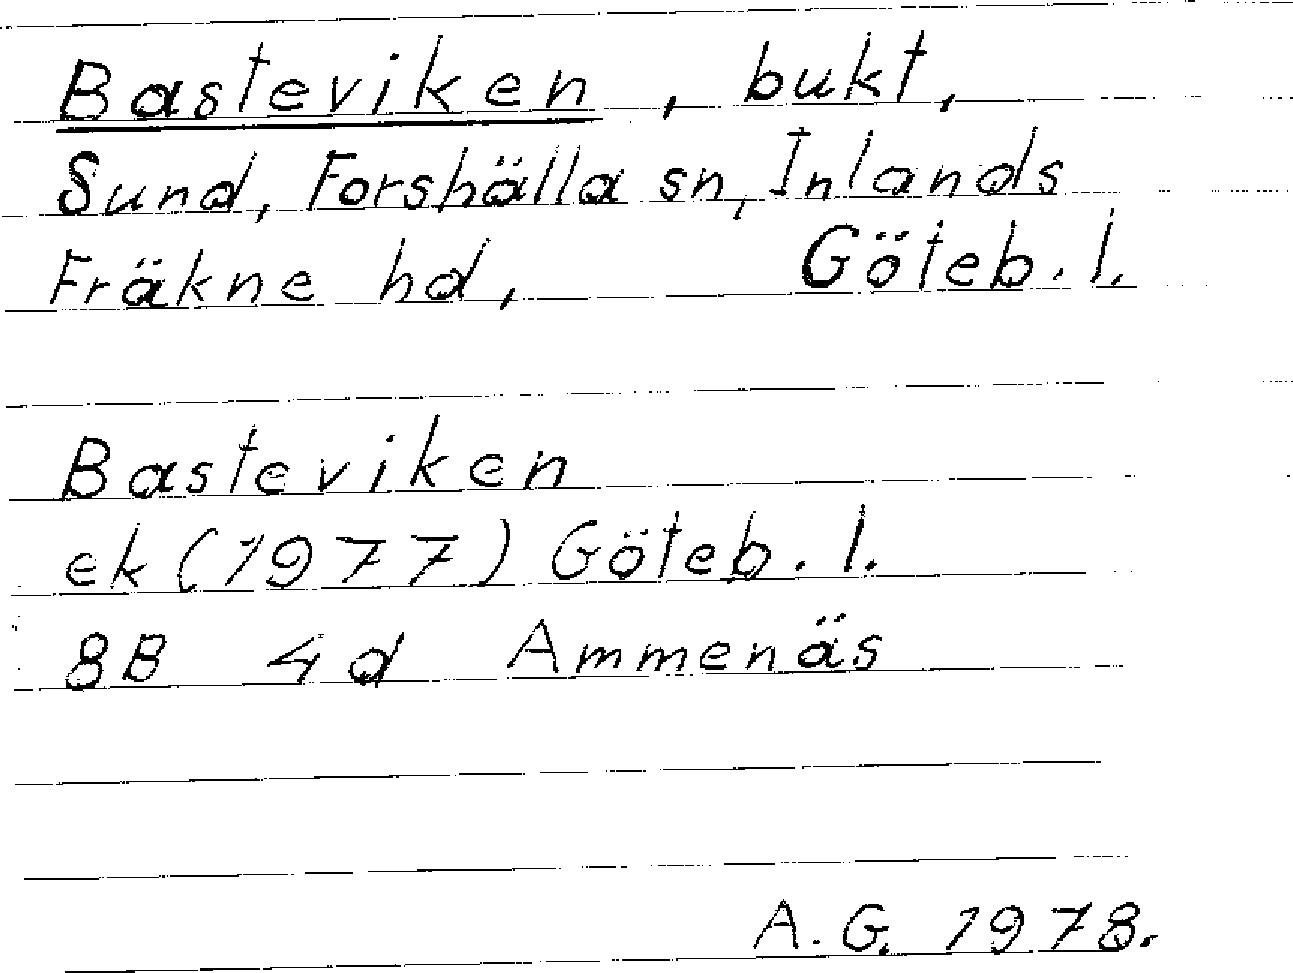 Basteviken, bukt,
Sund, Forshälla sn, Inlands
Fräkne hd, Göteb. l.
Basteviken
ek (1977) Göteb. l.
8B 4d Ammenäs
A. G. 1978.